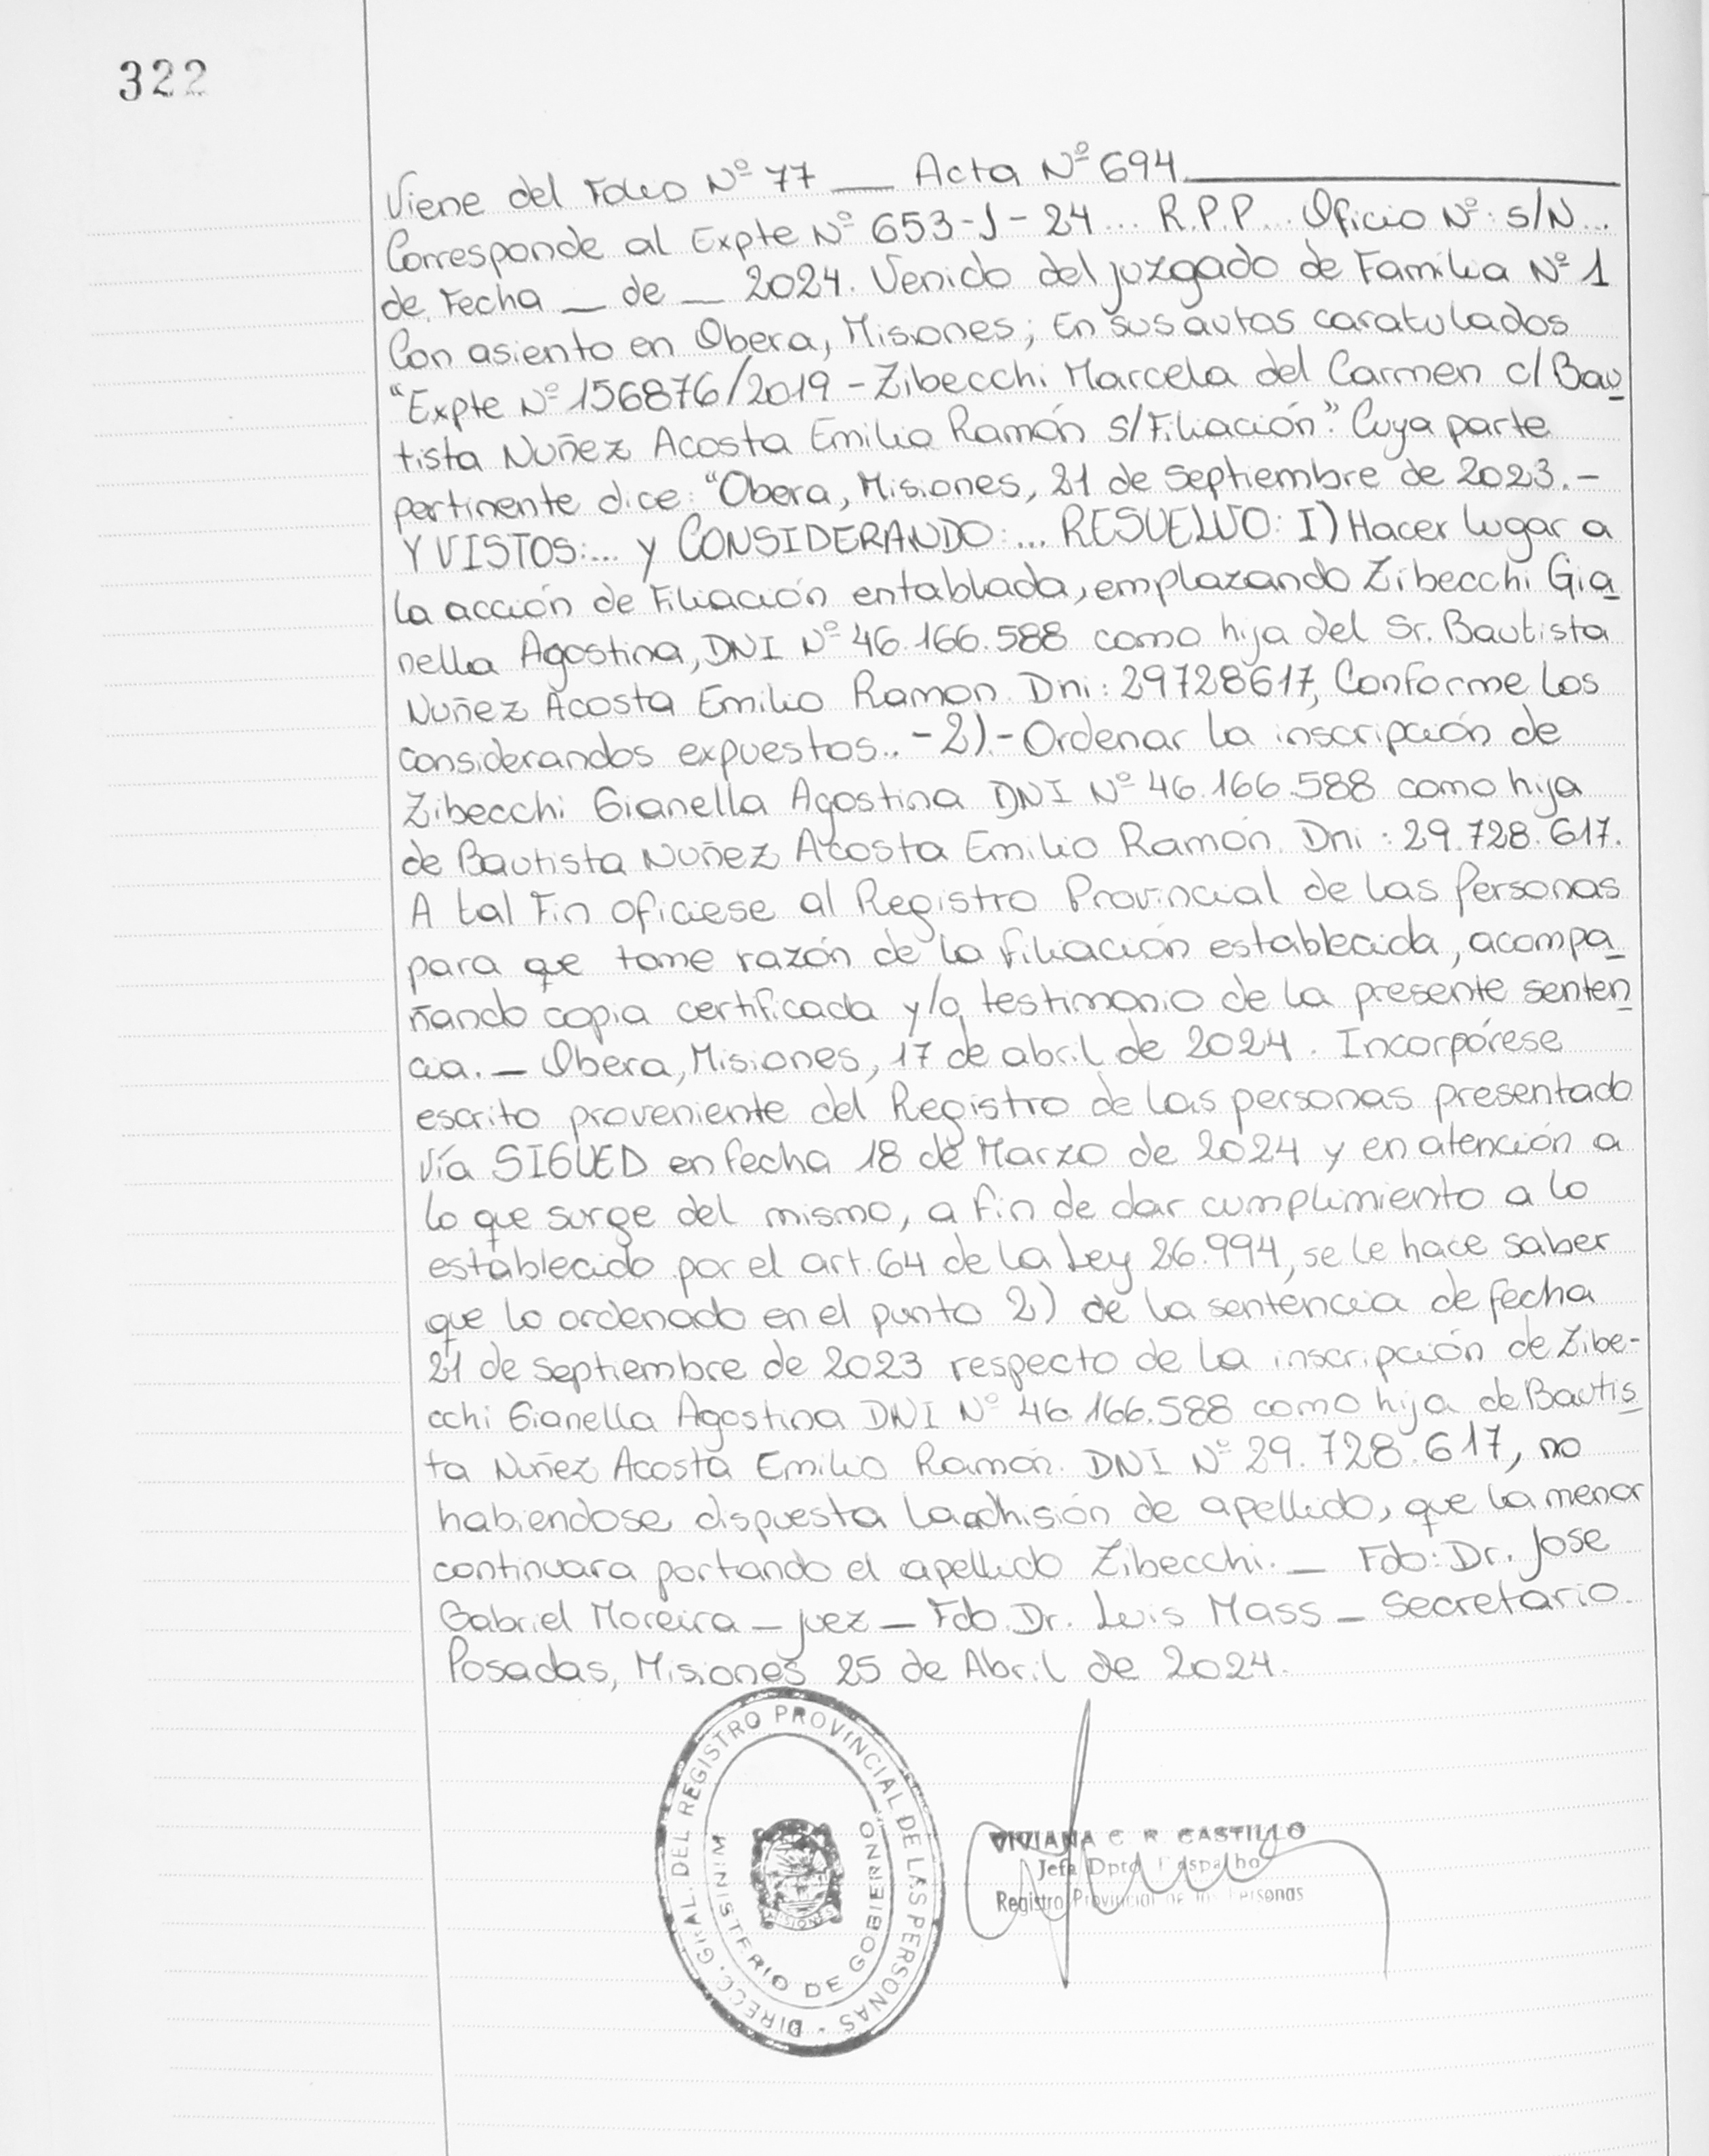 322
Viene del Folio Nº 77 __ Acta Nº 694
Corresponde al Expte Nº 653-J-24... R.P.P... Oficio Nº: S/N...
de Fecha __ de __ 2024. Venido del juzgado de Familia Nº 1
Con asiento en Obera, Misiones; En sus autos caratulados
"Expte Nº 156876/2019 - Zibecchi Marcela del Carmen c/ Bau
tista Nuñez Acosta Emilio Ramón S/Filiación". Cuya parte
pertinente dice: "Obera, Misiones, 21 de septiembre de 2023.-
Y VISTOS:... y CONSIDERANDO:... RESUELVO: I) Hacer lugar a
la acción de Filiación entablada, emplazando Zibecchi Gia
nella Agostina, DNI Nº 46.166.588 como hija del Sr. Bautista
Nuñez Acosta Emilio Ramon Dni: 29728617, Conforme los
considerandos expuestos.. -2).- Ordenar la inscripción de
Zibecchi Gianella Agostina DNI Nº 46.166.588 como hija
de Bautista Nuñez Acosta Emilio Ramón. Dni: 29.728.617.
A tal Fin oficiese al Registro Provincial de las Personas
para que tome razón de la filiación establecida, acompa
ñando copia certificada y/o testimonio de la presente senten
cia. _ Obera, Misiones, 17 de abril de 2024. Incorpórese
escrito proveniente del Registro de las personas presentado
Vía SIGUED en fecha 18 de Marzo de 2024 y en atención a
lo que surge del mismo, a fin de dar cumplimiento a lo
establecido por el art. 64 de la Ley 26.994, se le hace saber
que lo ordenado en el punto 2) de la sentencia de fecha
21 de septiembre de 2023 respecto de la inscripción de Zibe-
cchi Gianella Agostina DNI Nº 46.166.588 como hija de Bautis
ta Nuñez Acosta Emilio Ramón. DNI Nº 29.728.617, no
habiendose dispuesta la adhisión de apellido, que la menor
continuara portando el apellido Zibecchi. _ Fdo: Dr. Jose
Gabriel Moreira _ juez _ Fdo. Dr. Luis Mass _ Secretario.
Posadas, Misiones 25 de Abril de 2024.
DIRECC. GRAL. DEL REGISTRO PROVINCIAL DE LAS PERSONAS -
MINISTERIO DE GOBIERNO
MISIONES
VIVIANA C. R. CASTILLO
Jefa Dpto. Despacho
Registro Provincial de las Personas